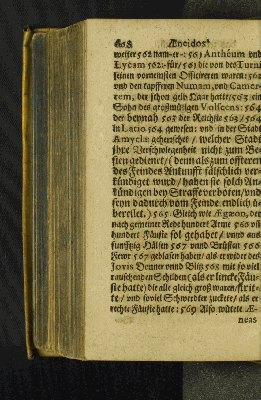 Æneidos
weiter 562 nam-er-: 563 Anthéum und
Lycam 562:für/ 563 die von des Turni
seinen vornemsten Officireren waren: 562
und den tapffren Numam, und Camer-
tem, der schon gelb Haar hatte/ 563 ein
Sohn des großmütigen Volscens: 564
der beynah 563 der Reichste 563/ 564
in Latio 564 gewesen: und in der Stadt
Amyclæ geherrschet / welcher Stadt
ihre Verschwiegenheit nicht zum Be-
sten gedienet/ ( denn als zum öfftern
des Feindes Ankunfft fälschlich ver-
kündiget wurd/ haben sie solch An-
kündigen bey Straffe verboten/ und
seyn dadurch vom Feinde endlich ü-
bereilet.) 565 Gleich wie Ægæon, der
nach gemeiner Rede hundert Arme 566 und
hundert Fäuste sol gehabt/ und aus
funffzig Hälsen 567 und Brüsten 566
Fewr 567 geblasen haben/ als er wider des
Jovis Donner und Blitz 568 mit so viel
rauschenden Schilden (als er lincke Fäu-
ste hatte) die alle gleich groß waren/ strit-
te/ und soviel Schwerdter zuckete/ als er
rechte Fäuste hatte: 569 Also wütete Æ-
neas